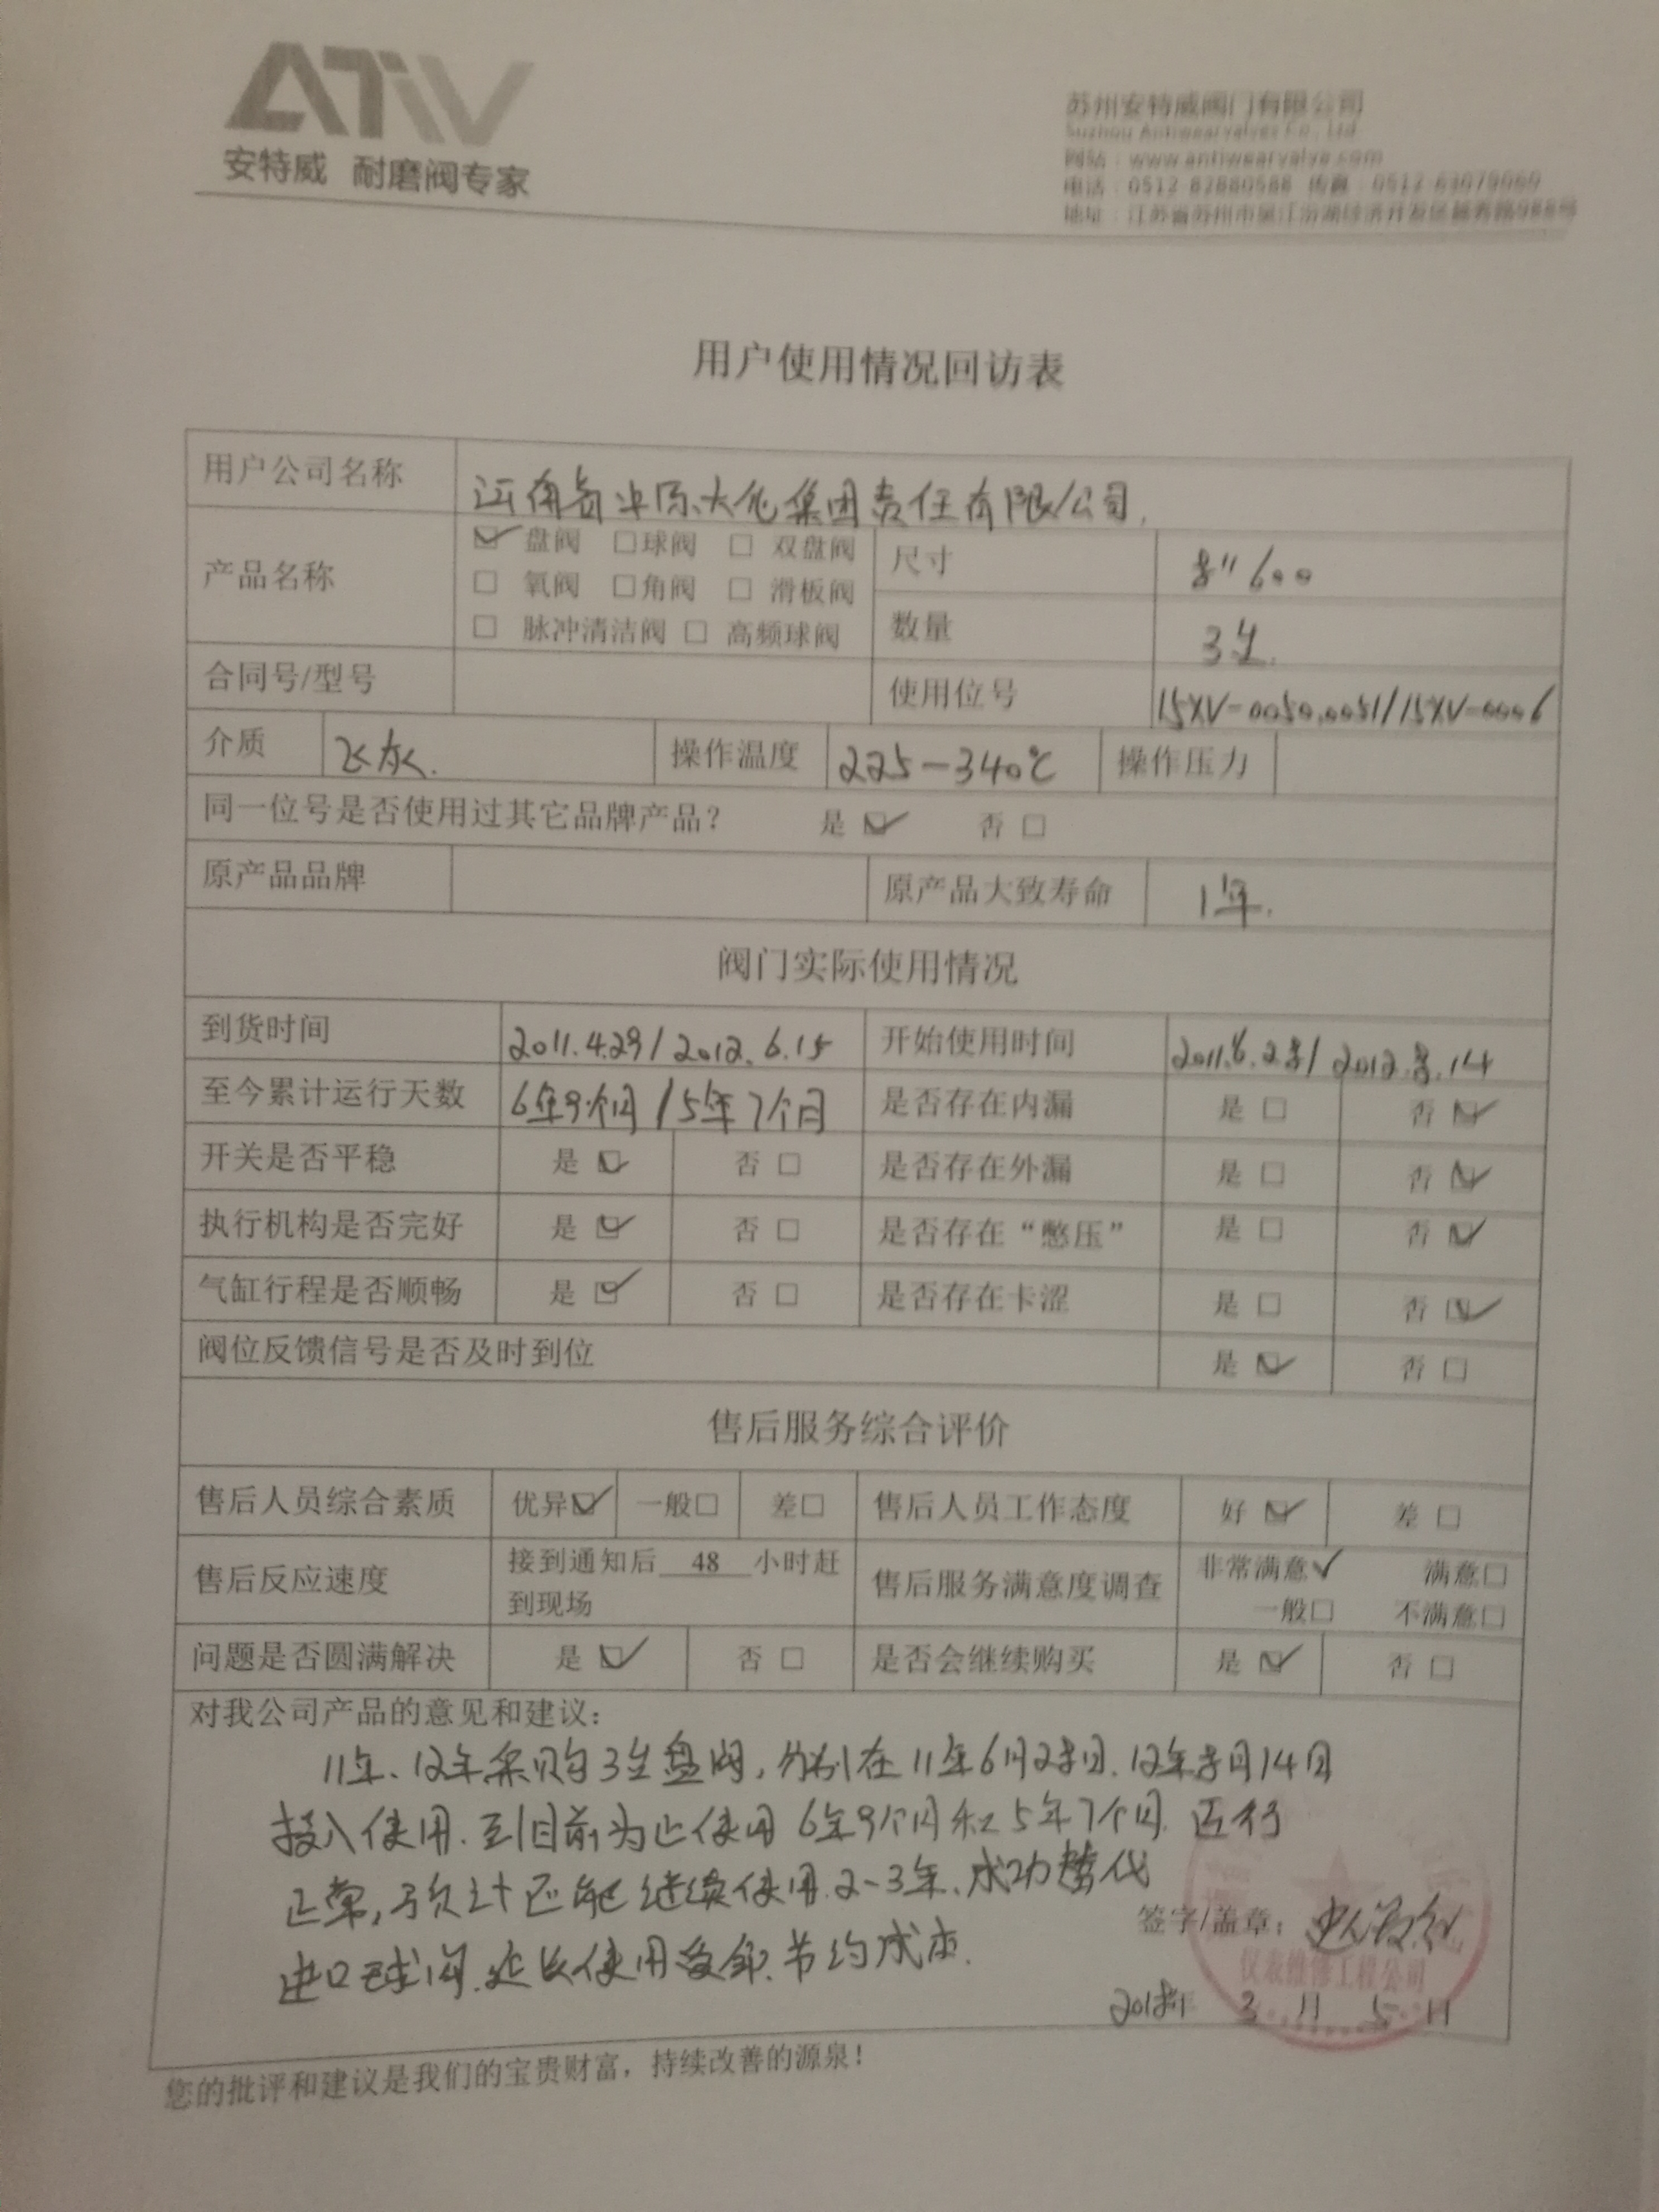 ATW
安特威 耐磨阀专家
苏州安特威阀门有限公司
Suzhou Antiwearvalves Co., Ltd
网站：www.antiwearvalve.com
电话：0512-82880588 传真：0512-63079060
用户使用情况回访表
用户公司名称 河南省中原大化集团责任有限公司.
产品名称 ☑ 盘阀 □球阀 □ 双盘阀 尺寸 8" 600
□ 氧阀 □角阀 □ 滑板阀
□ 脉冲清洁阀 □ 高频球阀 数量 3台.
合同号/型号 使用位号 15XV-0050,0051/15XV-0006
介质 飞灰. 操作温度 225-340℃ 操作压力
同一位号是否使用过其它品牌产品？ 是 ☑ 否 □
原产品品牌 原产品大致寿命 1年.
阀门实际使用情况
到货时间 2011.4.29/2012.6.15 开始使用时间 2011.6.28/2012.8.14
至今累计运行天数 6年9个月/5年7个月 是否存在内漏 是 □ 否 ☑
开关是否平稳 是 ☑ 否 □ 是否存在外漏 是 □ 否 ☑
执行机构是否完好 是 ☑ 否 □ 是否存在“憋压” 是 □ 否 ☑
气缸行程是否顺畅 是 ☑ 否 □ 是否存在卡涩 是 □ 否 ☑
阀位反馈信号是否及时到位 是 ☑ 否 □
售后服务综合评价
售后人员综合素质 优异☑ 一般□ 差□ 售后人员工作态度 好 ☑ 差 □
售后反应速度 接到通知后 48 小时赶到现场 售后服务满意度调查 非常满意✓ 满意□
一般□ 不满意□
问题是否圆满解决 是 ☑ 否 □ 是否会继续购买 是 ☑ 否 □
对我公司产品的意见和建议：
11年、12年采购3台盘阀，分别在11年6月28日.12年8月14日
投入使用.至目前为止使用6年9个月和5年7个月.运行
正常，预计还能继续使用2-3年.成功替代
进口球阀.延长使用寿命.节约成本.
签字/盖章：
仪表维修工程公司
2018年 3 月 5 日
您的批评和建议是我们的宝贵财富，持续改善的源泉！